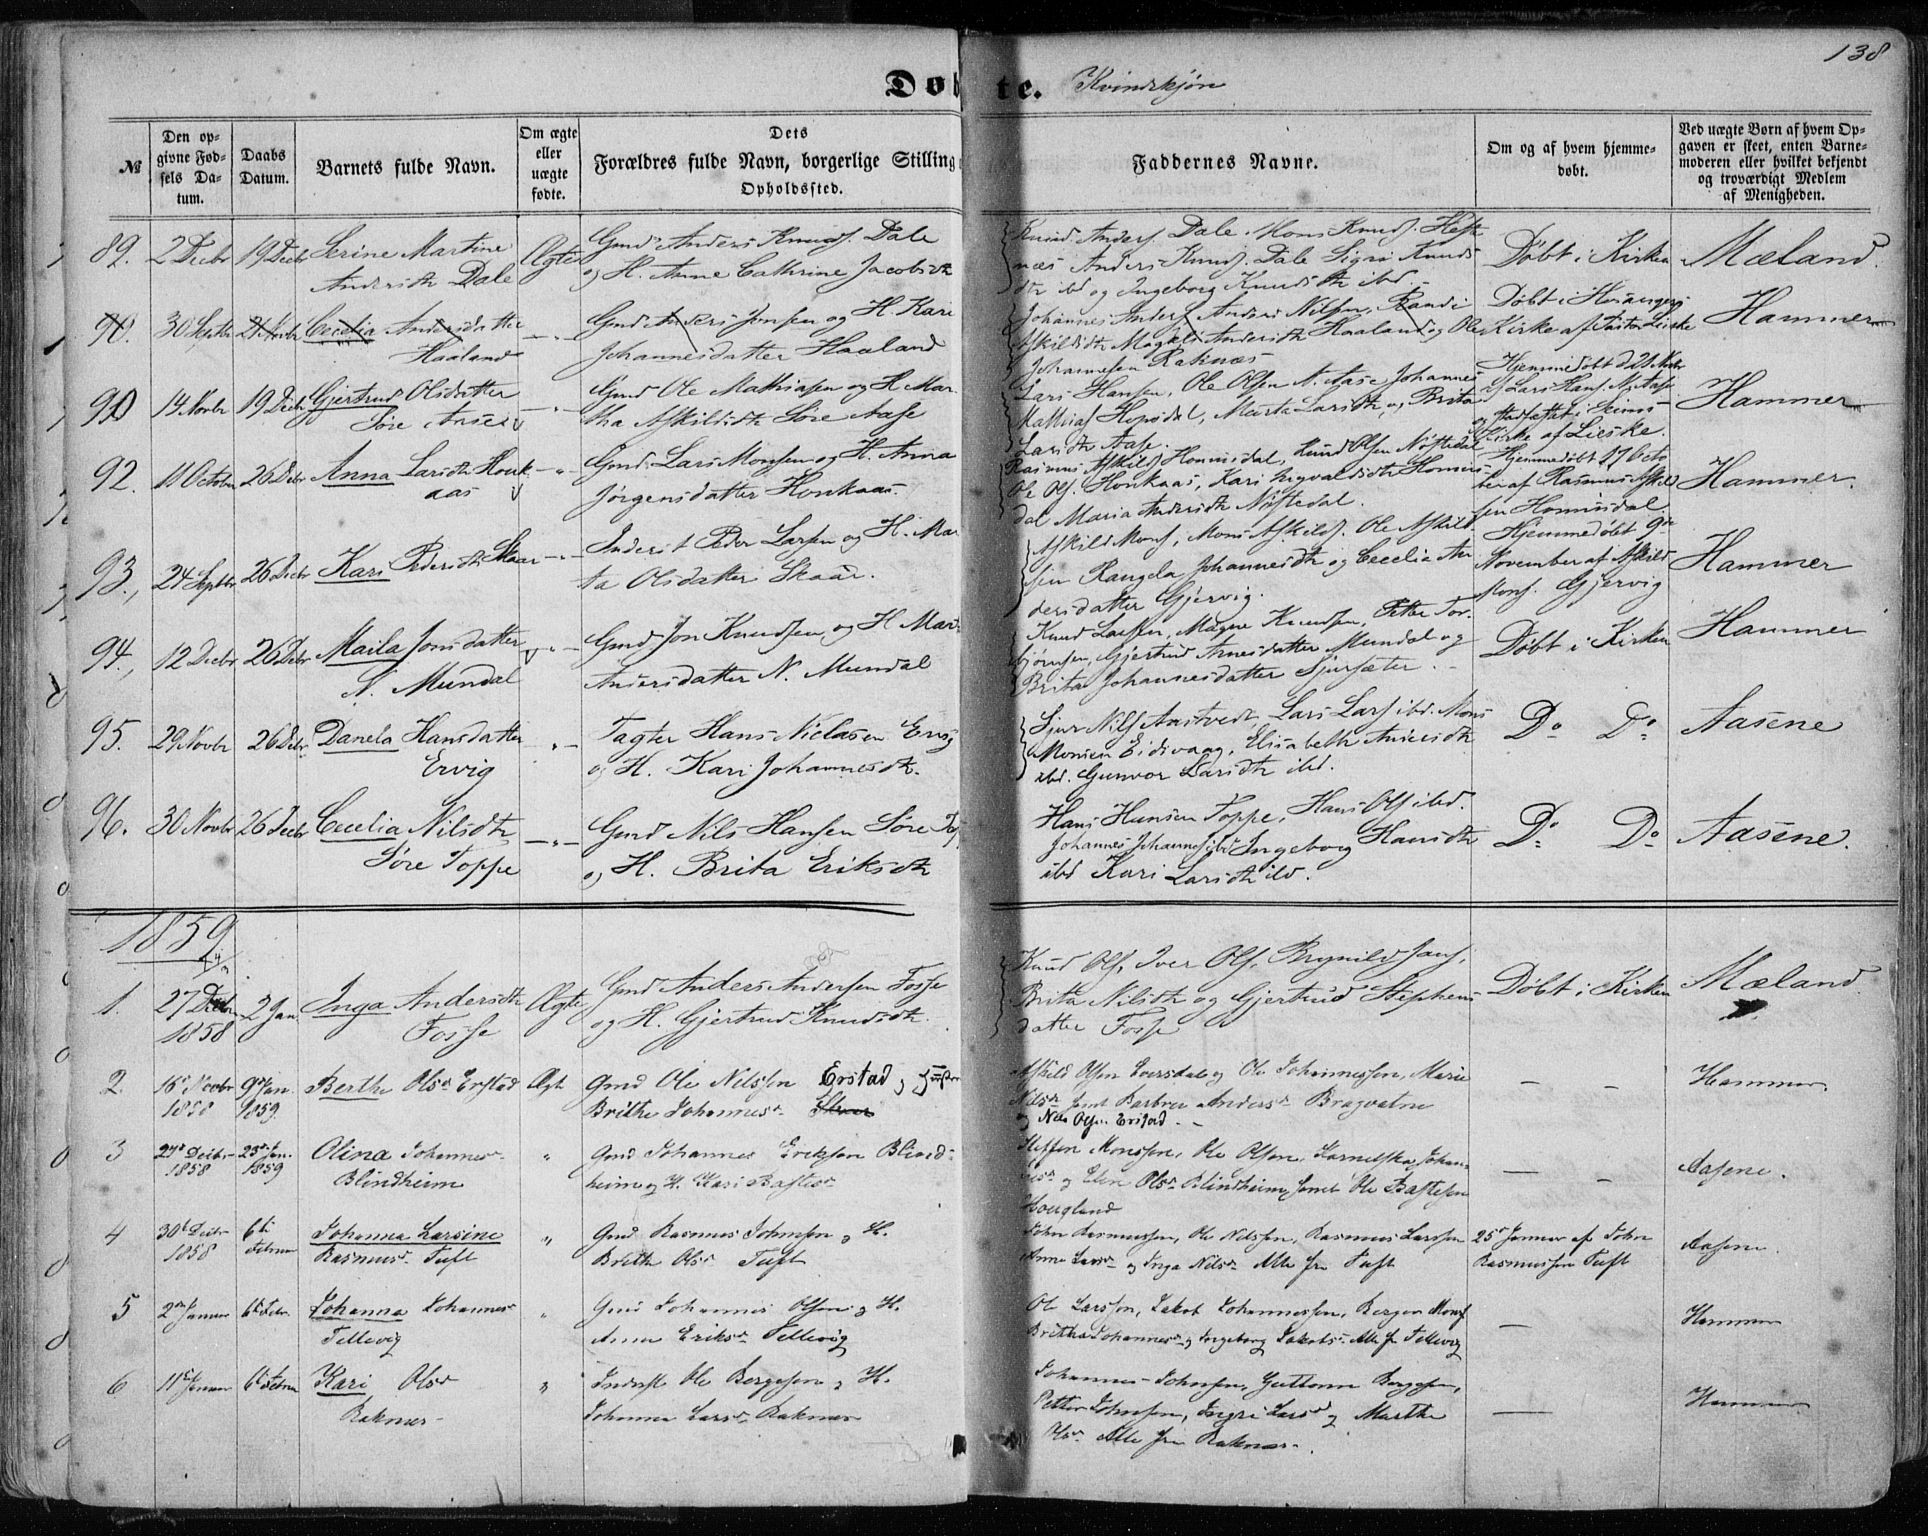 138
Døbte. Kvindekjøn
№
Den op-
givne Fød-
sels Da-
tum.
Daabs
Datum.
Barnets fulde Navn.
Om ægte
eller
uægte
fødte.
Dets
Forældres fulde Navn, borgerlige Stilling
Opholdssted.
Faddernes Navne.
Om og af hvem hjemme-
døbt.
Ved uægte Børn af hvem Op-
gaven er skeet, enten Barne-
moderen eller hvilket bekjendt
og troværdigt Medlem
af Menigheden.
89. 2 Decbr 19 Decbr Serine Martine Ægte Gmd Anders Knuds. Dale
Andersdtr Dale og H. Anne Cathrine Jacobsdtr
Knud Anders. Dale, Mons Knuds. Heste
næs Anders Knuds. Dale Sigri Knuds
dtr ibd og Ingeborg Knudsdtr ibd.
Døbt i Kirken Mæland.
90. 30 Septbr 21 Novbr Cecelia Andersdatter Gmd Anders Jonsen og H. Kari
Haaland Johannesdatter Haaland
Johannes Anders. Anders Nilsen, Randi
Askildsdtr Magli Andersdtr Haaland og Ole
Johannesen Raknæs
Døbt i Hosangers
Kirke af Pastor Lieske
Hammer
90 14 Novbr 19 Decbr Gjertrud Olsdatter Gmd Ole Mathiasen og H. Mar
Søre Aase tha Askildsdtr Søre Aase
Lars Hansen, Ole Olsen N. Aase Johannes
Mathias. Hopsdal, Marta Larsdtr, og Brita
Larsdtr Aase.
Hjemmedøbt d 21 Novbr
af Lars Hans. N. Aase
stadfæstet i Seims
Kirke af Lieske.
Hammer
92. 11 October 26 Decbr Anna Larsdtr Honk Gmd. Lars Monsen og H. Anna
aas Jørgensdatter Honkaas.
Rasmus Askilds. Homnisdal, Knud Olsen Nøstedal
Ole Ols. Honkaas, Kari Ingvaldsdtr Homnis
dal Maria Andersdtr Nøstedal.
Hjemmedøbt 17 Octo
ber af Rasmus Askild
sen Homnisdal.
Hammer.
93., 24 Septbr 26 Decbr Kari Pedersdtr Skaar Inderst Peder Larsen og H. Mar
ta Olsdatter Skaar.
Askild Mons, Mons Askilds. Ole Askild
sen Rangela Johannesdtr og Cecelia An
dersdatter Gjervig.
Hjemmedøbt 9de
November af Askild
Mons. Gjervig
Hammer
94., 12 Decbr 26 Decbr Maila Jonsdatter Gmd Jon Knudsen og H. Mar
N. Mundal Andersdatter N. Mundal
Knud Larsen, Magne Knudsen, Petter Tor
bjørnsen, Gjertrud Arnesdatter Mundal og
Brita Johannesdatter Sjursæter.
Døbt i Kirken Hammer
95. 29 Novbr 26 Decbr Danela Hansdatter Gagter Hans Niclasen Ervig
Ervig og H. Kari Johannesdtr.
Sjur Nils. Aastvedt, Lars Lars. ibd. Mons
Monsen Eidsvaag, Elisabeth Andersdtr
ibd. Gunvor Larsdtr ibd.
Do Do Aasene
96. 30 Novbr 26 Decbr Cecelia Nilsdtr Gmd Nils Hansen Søre Top
Søre Toppe og H. Brita Eriksdtr
Hans Hansen Toppe, Hans Ols. ibd.
Johannes Johannes. ibd Ingeborg Hansdtr
ibd Kari Larsdtr ibd.
Do Do Aasene.
1859
1. 27 Decbr 2 Jan. Inga Andersdtr Ægte Gmd Anders Andersen Fosse
1858 Fosse og H. Gjertrud Knudsdtr.
Knud Ols, Iver Ols, Brynild Jans,
Brita Nilsdtr og Gjertrud Stephens
datter Fosse
Døbt i Kirken Mæland.
2. 16de Novbr 9de Jan Berthe Olsdr Erstad Ægte Gmd Ole Nilssen Erstad og Hustru
1858 1859. Brithe Johannesdr
Askild Olsen Eversdal og Ole Johannessen, Marie
Nilsdr samt Barbru Andersdr Bragvatne
og Nils Olsen Erstad.
Hammer.
3 27de Decbr 23de Jan. Olina Johannesdr Gmd Johannes Eriksen Blind-
1858 1859 Blindheim heim og H. Kari Bastesdr
Steffen Monssen, Ole Olsen, Karnelska Johan-
nesdr og Eline Olsdr Blindheim samt Ole Bastesen
Hougland
Aasene.
4 30te Decbr 6te Johanna Larsine Gmd Rasmus Johnsen og H.
1858 Februar Rasmusdr Tuft Brithe Olsdr Tuft
John Rasmussen, Ole Nilssen, Rasmus Larssen
Anne Larsdr og Inga Nilsdr Alle fra Tuft
25de Januar af John
Rasmussen Tuft
Aasene.
5 2den Januar 6te Febr. Johanna Johannesdr Gmd Johannes Olsen og H.
Tellevig Anna Eriksdr Tellevig
Ole Larssen, Jakob Johannessen, Berger Mons.
Britha Johannesdr og Ingeborg Jakobsdr Alle fra Tellevig
Hammer
6 11te Januar 6te Februar Kari Olsdr Inderst Ole Bergesen og H.
Raknes Johanna Larsdr Raknes
Johannes Johnsen, Guttorm Bergesen,
Petter Johnsen, Ingri Larsdr og Marthe
Olsdr Alle fra Raknes.
Hammer